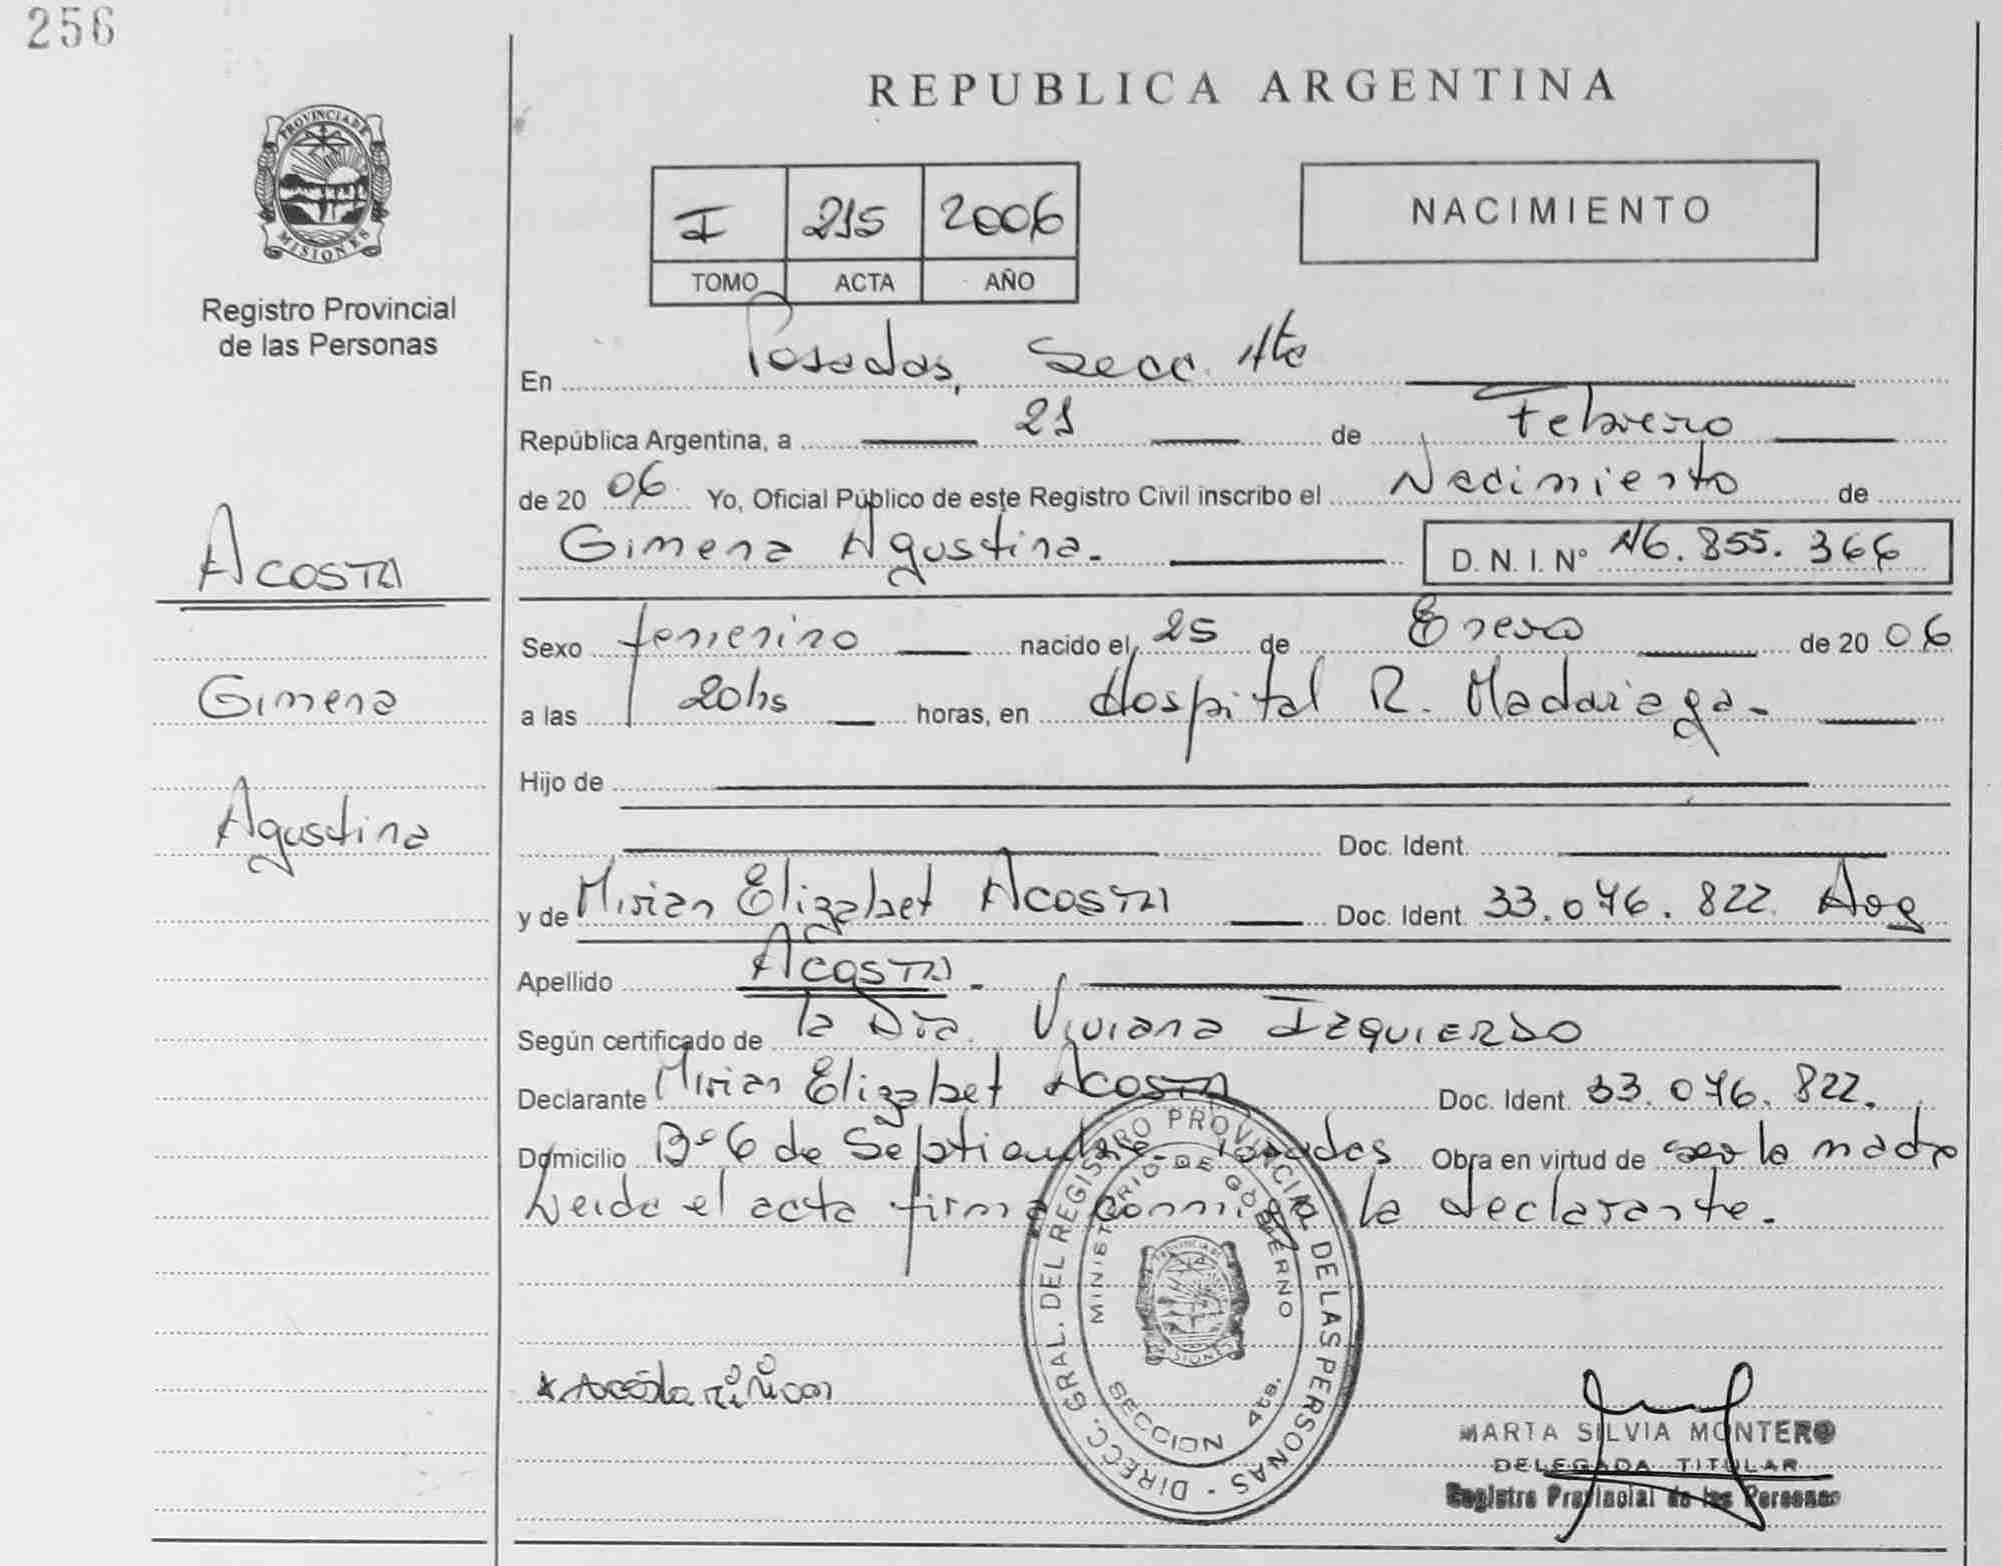 256
REPUBLICA ARGENTINA
PROVINCIA DE
MISIONES
Registro Provincial
de las Personas
I 215 2006
TOMO ACTA AÑO
NACIMIENTO
En Posadas, Secc. 4ta
República Argentina, a 21 de Febrero
de 20 06 Yo, Oficial Público de este Registro Civil inscribo el Nacimiento de
Gimena Agustina.- D. N. I. Nº 46.855.366
ACOSTA
Gimena
Agustina
Sexo femenino nacido el 25 de Enero de 20 06
a las 20hs horas, en Hospital R. Madariaga -
Hijo de
Doc. Ident.
y de Mirian Elizabet ACOSTA Doc. Ident. 33.076.822
Apellido ACOSTA -
Según certificado de la Dra. Viviana IZQUIERDO
Declarante Mirian Elizabet ACOSTA Doc. Ident. 33.076.822.
Domicilio Bº 6 de Septiembre - Posadas Obra en virtud de ser la madre
Leida el acta firma conmigo la declarante.
DIRECC. GRAL. DEL REGISTRO PROVINCIAL DE LAS PERSONAS -
MINISTERIO DE GOBIERNO
PROVINCIA DE
MISIONES
SECCION 4ta.
MARTA SILVIA MONTERO
DELEGADA TITULAR
Registro Provincial de las Personas